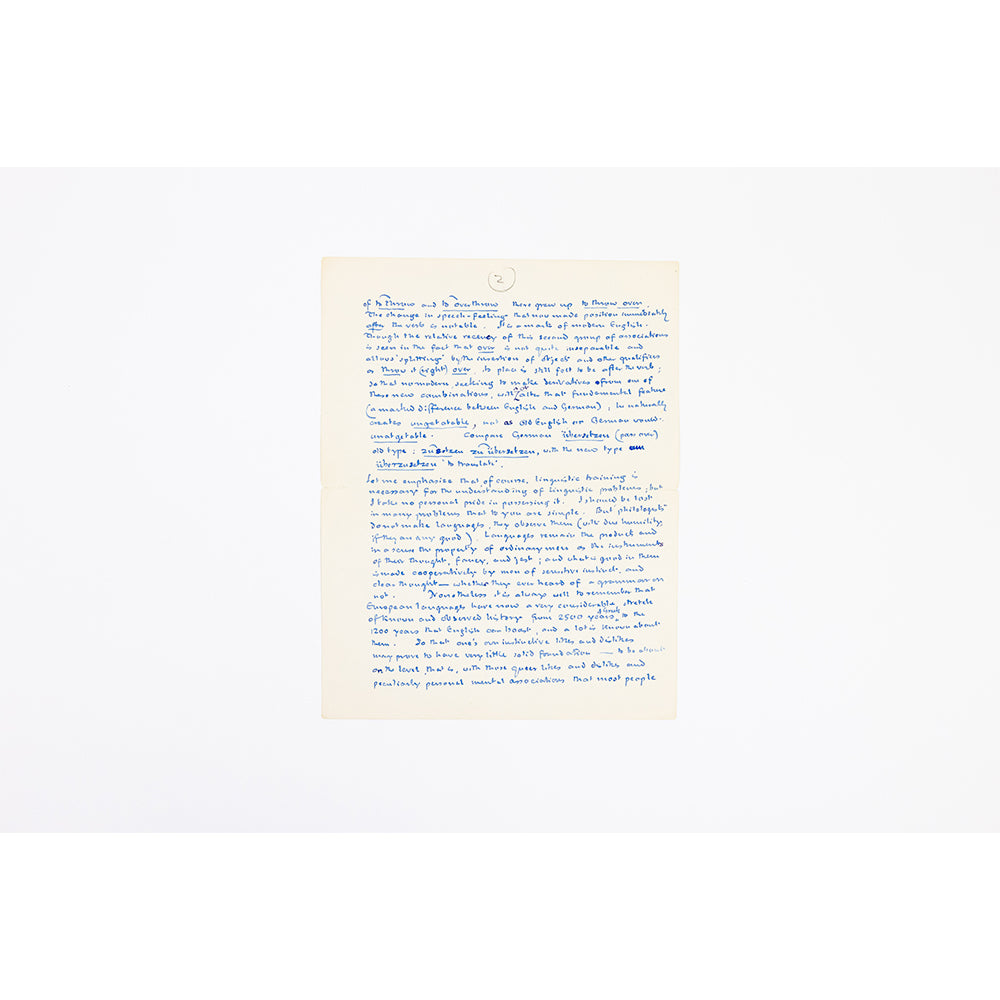 2
of to throw and to overthrow there grew up to throw over.
The change in speech-feeling that now made position immediately
after the verb is notable. It is a mark of modern English.
Though the relative recency of this second group of associations
is seen in the fact that over is not quite inseparable and
allows 'splitting' by the insertion of object and other qualifiers
as throw it (right) over, its place is still felt to be after the verb;
so that no modern, seeking to make derivatives from one of
these new combinations, will (or can) alter that fundamental feature
(a marked difference between English and German); he naturally
creates ungetatable, not as Old English or German would
unatgetable. Compare German übersetzen (pass over)
old type: zu setzen zu übersetzen, with the new type
überzusetzen 'to translate'.
Let me emphasise that of course, linguistic training is
necessary for the understanding of linguistic problems; but
I take no personal pride in possessing it. I should be lost
in many problems that to you are simple. But philologists
do not make languages, they observe them (with due humility,
if they are any good). Languages remain the product and
in a sense the property of ordinary men as the instruments
of their thought, fancy, and jest; and what is good in them
is made cooperatively by men of sensitive instinct, and
clear thought — whether they ever heard of a grammar or
not. Nonetheless it is always well to remember that
European languages have now a very considerable stretch
of known and observed history from 2500 years to the
1200 years that English can boast, and a lot is known about
them. So that one's own instinctive likes and dislikes
may prove to have very little solid foundation — to be about
on the level, that is, with those queer likes and dislikes and
peculiarly personal mental associations that most people